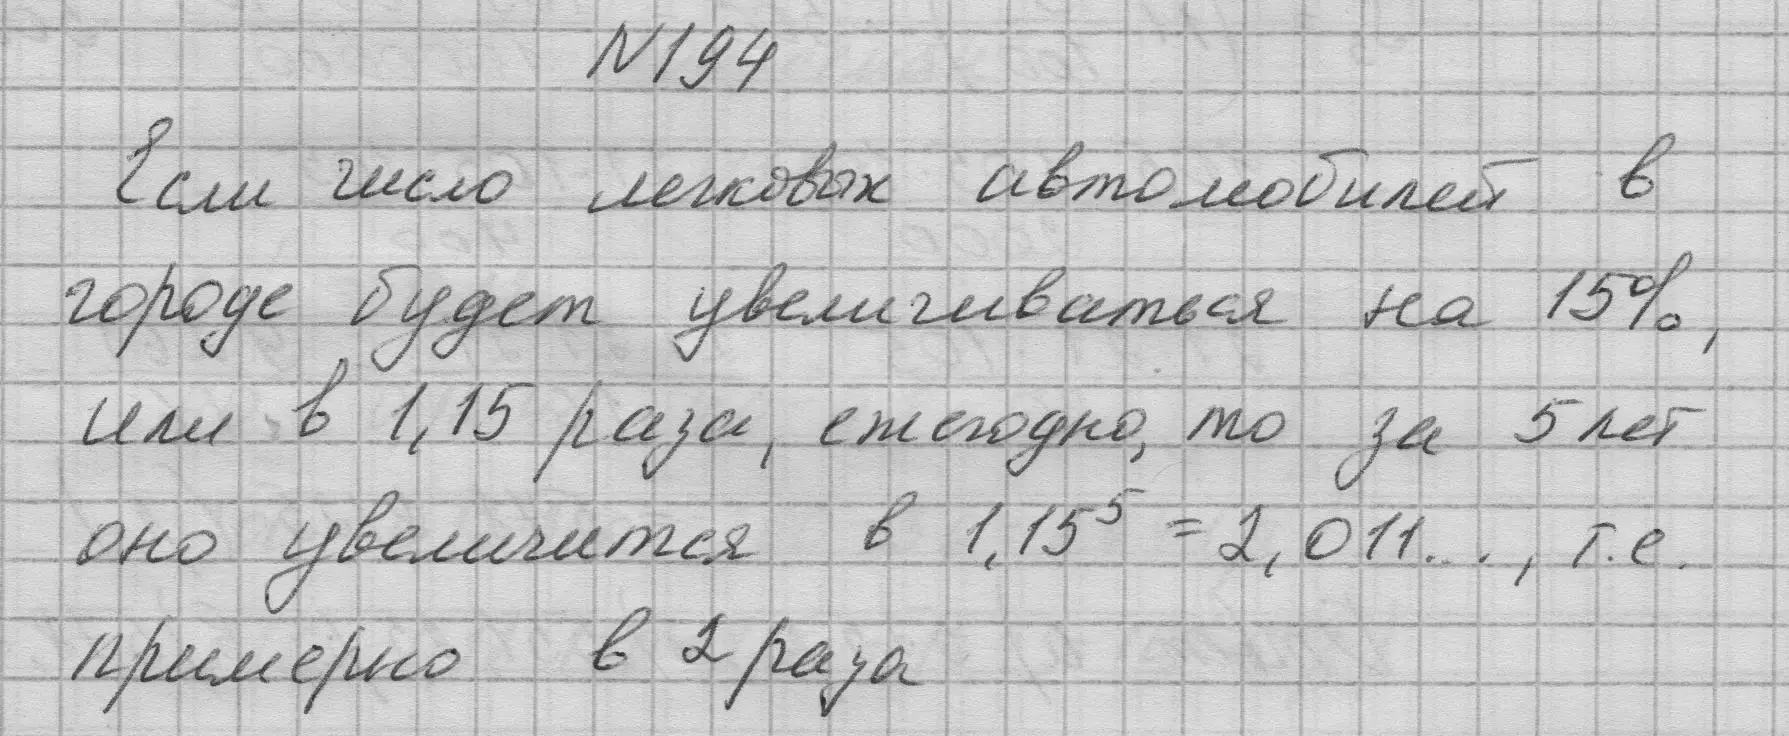 N194
Если число легковых автомобилей в
городе будет увеличиваться на 15%,
или в 1,15 раза, ежегодно, то за 5 лет
оно увеличится в 1,15⁵ = 2,011..., т.е.
примерно в 2 раза